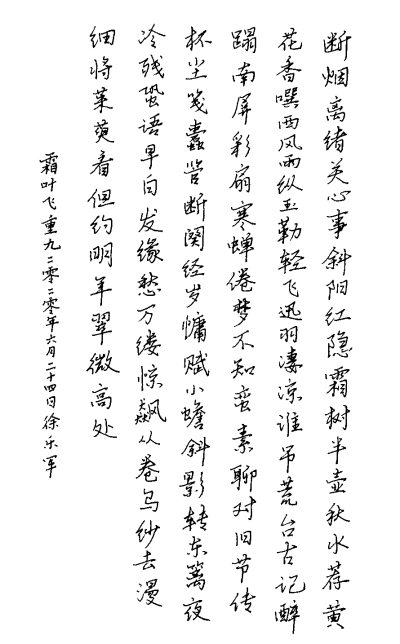 断烟离绪关心事斜阳红隐霜树半壶秋水荐黄
花香噀西风雨纵玉勒轻飞迅羽凄凉谁吊荒台古记醉
蹋南屏彩扇寒蝉倦梦不知蛮素聊对旧节传
杯尘笺蠹管断阕经岁慵赋小蟾斜影转东篱夜
冷残蛩语早白发缘愁万缕惊飙从卷乌纱去漫
细将茱萸看但约明年翠微高处
霜叶飞重九二零二零年六月二十四日徐乐军